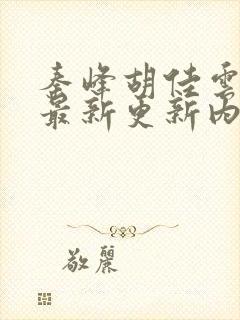 秦峰胡佳雲
最新更新內
敬麗